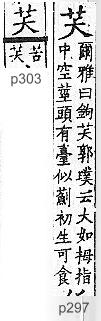 芺
爾雅曰鉤芺郭璞云大如拇指
中空莖頭有臺似薊初生可食
p297
芺
苦
芺
p303